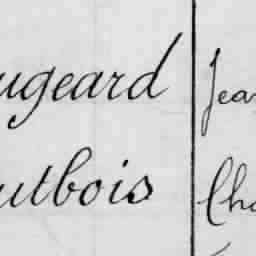 ugeard Jea
utbois Cha